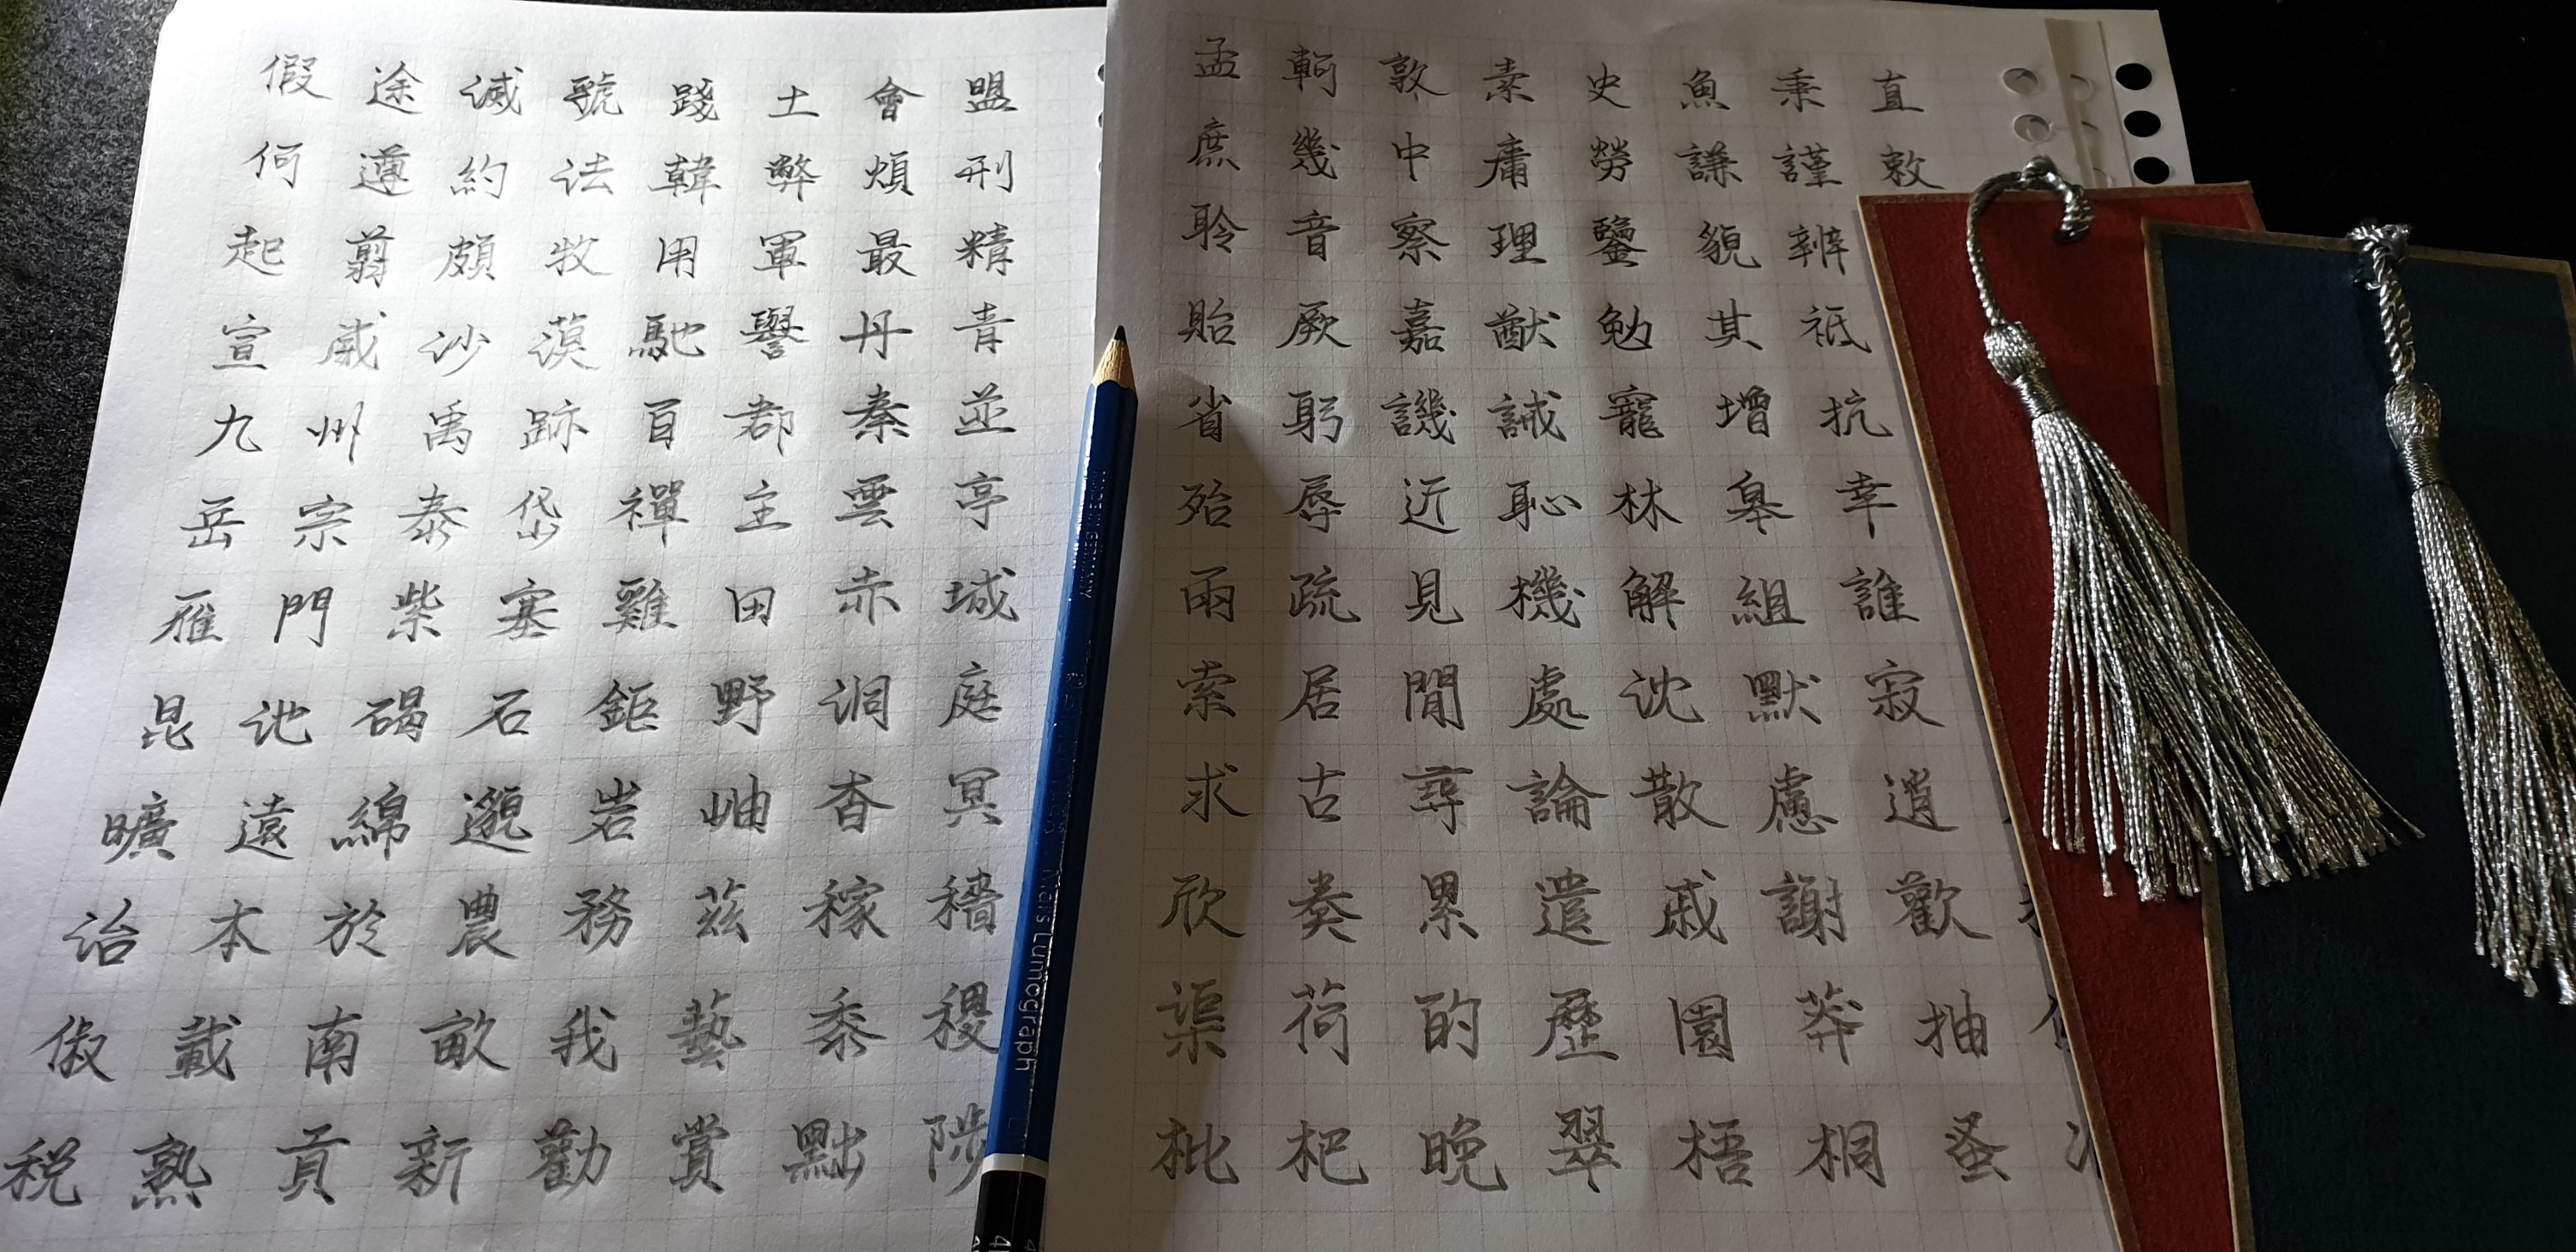 假途滅虢踐土會盟
何遵約法韓弊煩刑
起翦頗牧用軍最精
宣威沙漠馳譽丹青
九州禹跡百郡秦並
岳宗泰岱禪主雲亭
雁門紫塞雞田赤城
昆池碣石鉅野洞庭
曠遠綿邈岩岫杳冥
治本於農務茲稼穡
俶載南畝我藝黍稷
稅熟貢新勸賞黜陟
孟軻敦素史魚秉直
庶幾中庸勞謙謹敕
聆音察理鑒貌辨
貽厥嘉猷勉其祗
省躬譏誡寵增抗
殆辱近恥林皋幸
兩疏見機解組誰
索居閒處沈默寂
求古尋論散慮逍
欣奏累遣慼謝歡
渠荷的歷園莽抽
枇杷晚翠梧桐蚤
Mars Lumograph